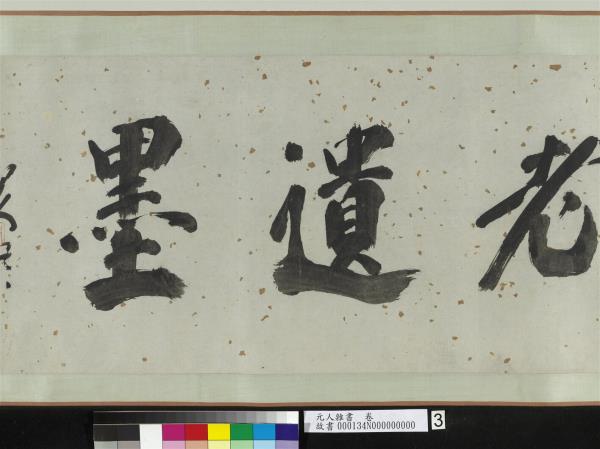 老遺墨
元人雜書　卷
故書 000134N000000000
3